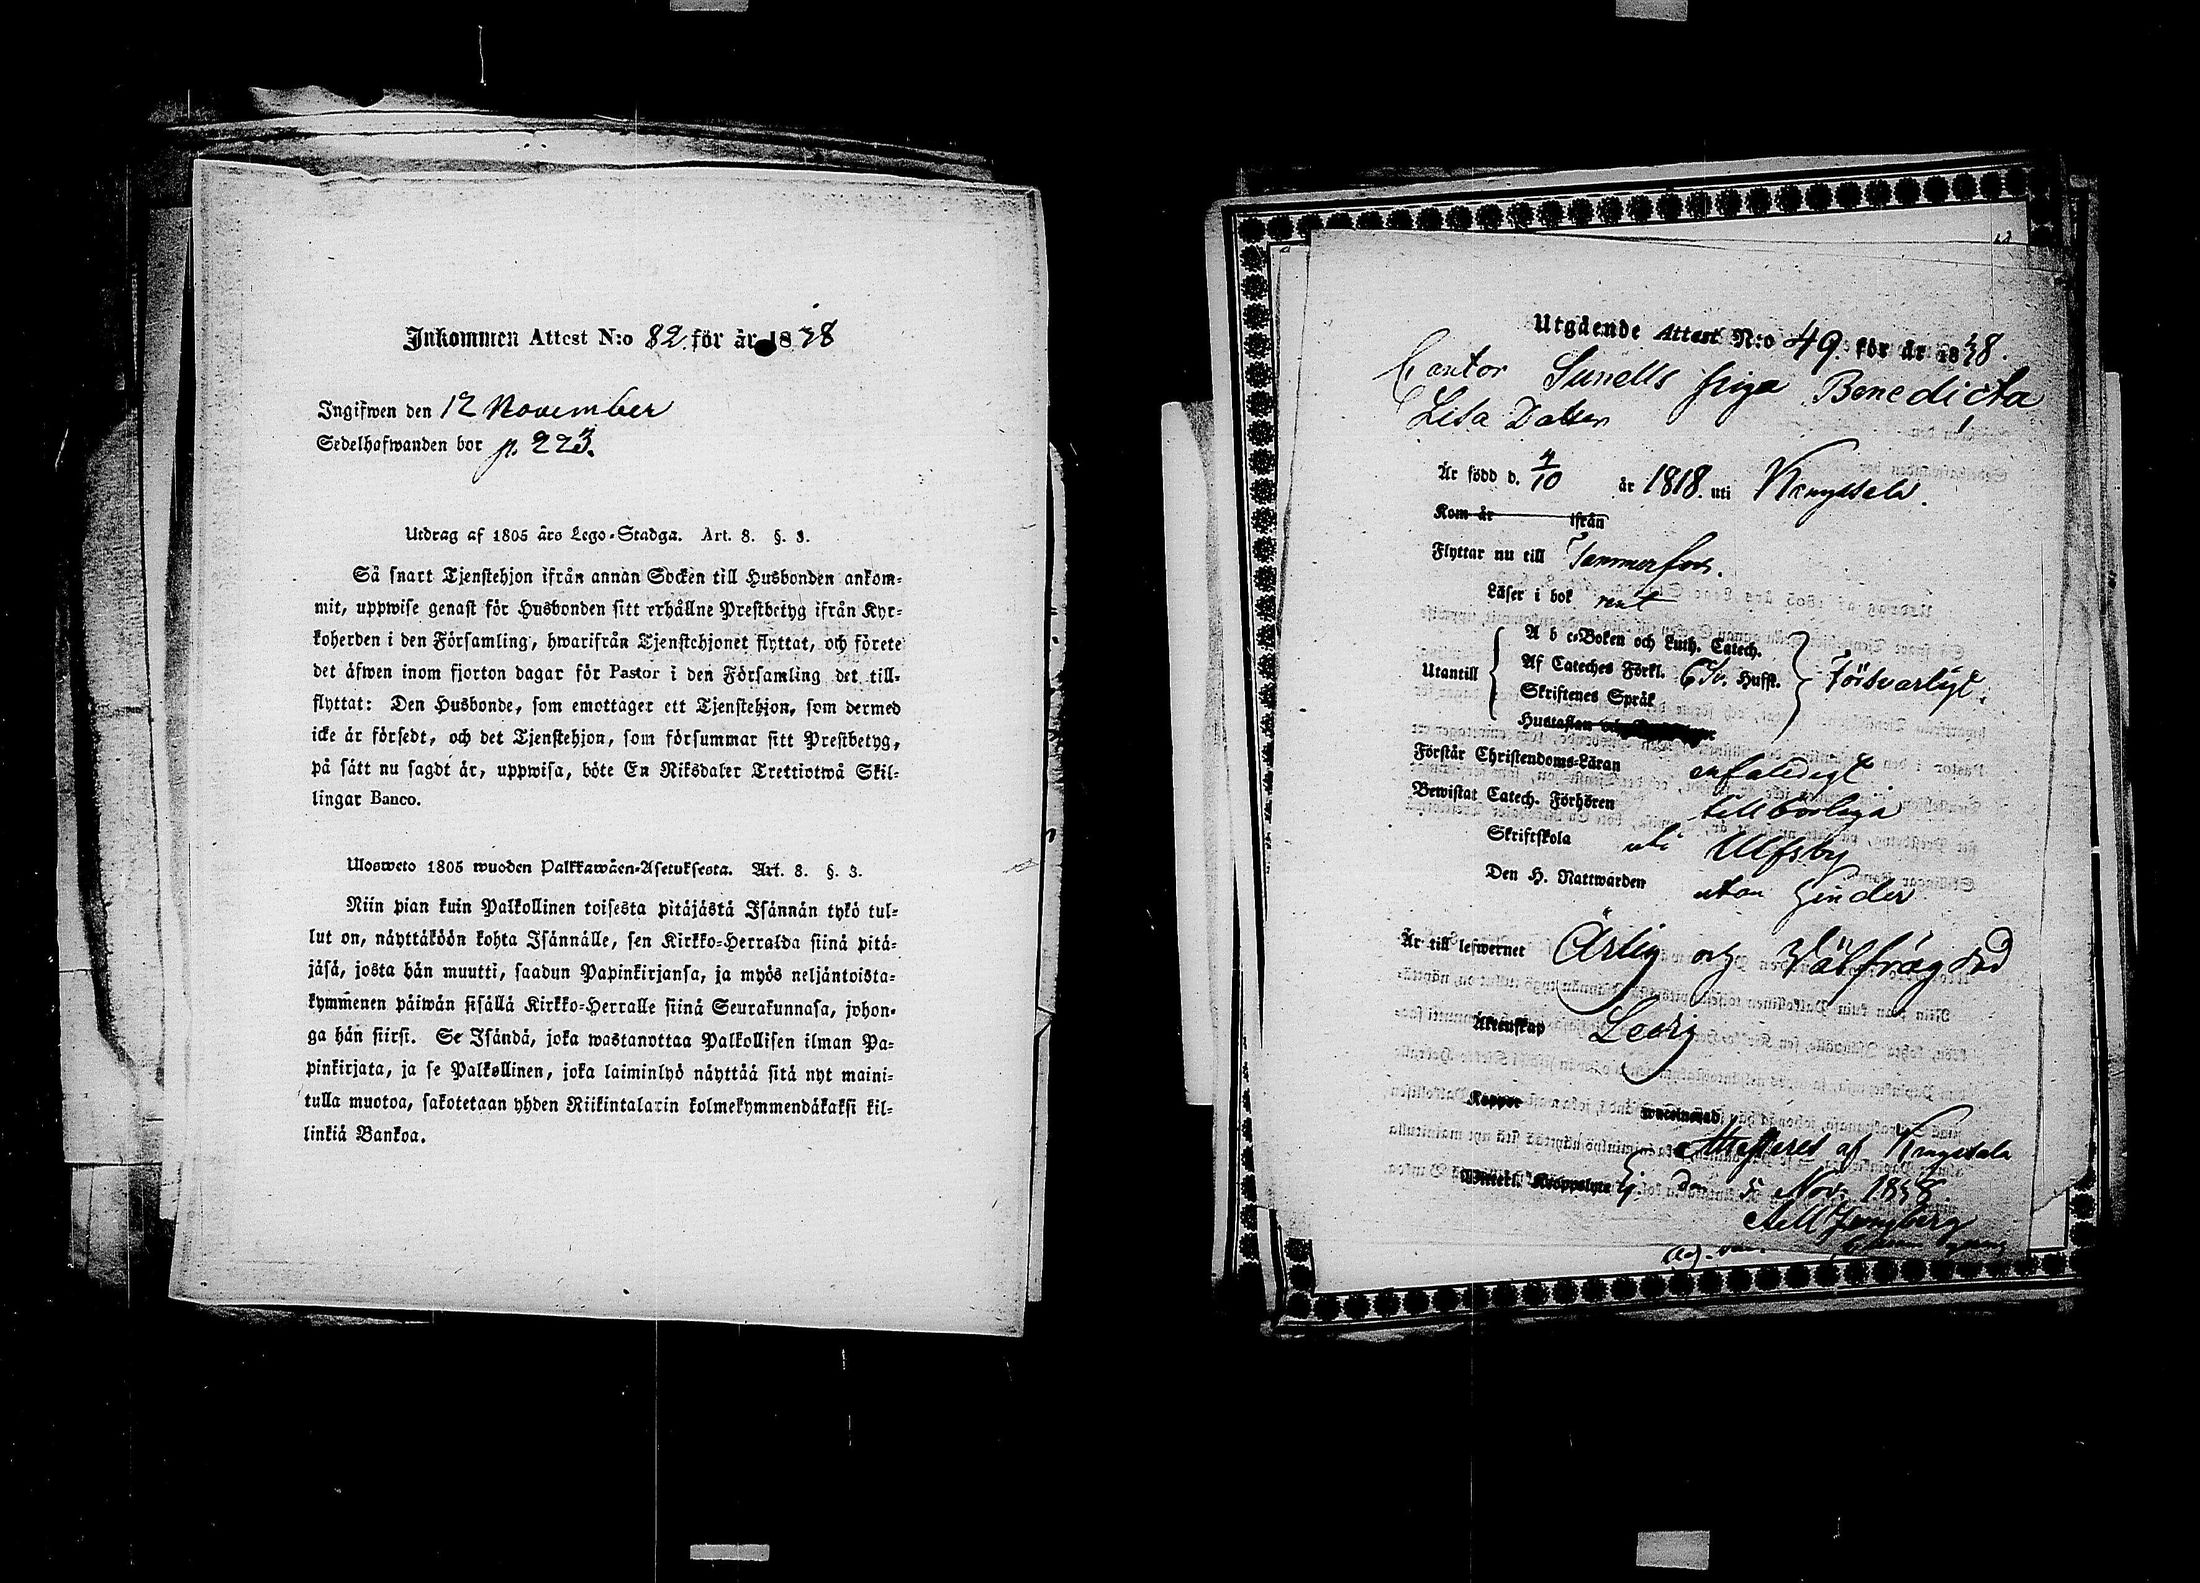 Inkommen Attest N:o 82 för år 1858
Ingifwen den 12 November
Sedelhafwanden bor p. 223.
Utdrag af 1805 års Lego-Stadga. Art. 8. §. 3.
Så snart Tjenstehjon ifrån annan Socken till Husbonden ankom-
mit, uppwise genast för Husbonden sitt erhållne Prestbetyg ifrån Kyr-
koherden i den Församling, hwarifrån Tjenstehjonet flyttat, och förete
det äfwen inom fjorton dagar för Pastor i den Församling det till-
flyttat: Den Husbonde, som emottager ett Tjenstehjon, som dermed
icke är försedt, och det Tjenstehjon, som försummar sitt Prestbetyg,
på sätt nu sagdt är, uppwisa, böte En Riksdaler Trettiotwå Skil-
lingar Banco.
Ulosweto 1805 wuoden Palkkawäen-Asetuksesta. Art. 8. §. 3.
Niin pian kuin Palkollinen toisesta pitäjästä Isännän tykö tul-
lut on, näyttäköön kohta Isännälle, sen Kirkko-Herralda siinä pitä-
jäsä, josta hän muutti, saadun Papinkirjansa, ja myös neljäntoista-
kymmenen päiwän sisällä Kirkko-Herralle siinä Seurakunnasa, johon-
ga hän siirsi. Se Isändä, joka wastanottaa Palkollisen ilman Pa-
pinkirjata, ja se Palkollinen, joka laiminlyö näyttää sitä nyt maini-
tulla muotoa, sakotetaan yhden Riikintalarin kolmekymmendäkaksi kil-
linkiä Bankoa.
Utgående Attest N:o 49 för år 1858.
Cantor Sunells piga Benedicta
Lisa Dotter
Är född d. 4/10 år 1818. uti Kangasala.
Kom år ifrån
Flyttar nu till Tammerfors.
Läser i bok rent
A b c-Boken och Luth. Catech.
Utantill Af Cateches Förkl. 6 Hufst. Försvarligt.
Skriftenes Språk
Hustaflan
Förstår Christendoms-Läran enfaldigt
Bewistat Catech. Förhören tillbörliga
Skriftskola uti Ulfsby
Den H. Nattwarden utan hinder
Är till lefwernet Ärlig och Välfrägdad
Äktenskap Ledig
Koppor
Attesteres af Kangasala
den 5 Nov: 1858.